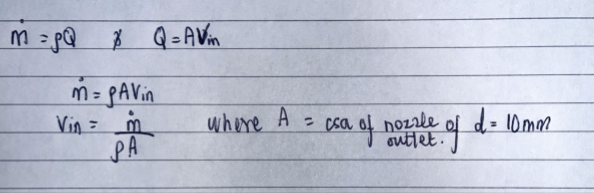 ṁ = ρQ & Q = AVin
ṁ = ρAVin
Vin = ṁ / ρA where A = csa of nozzle outlet. of d = 10mm